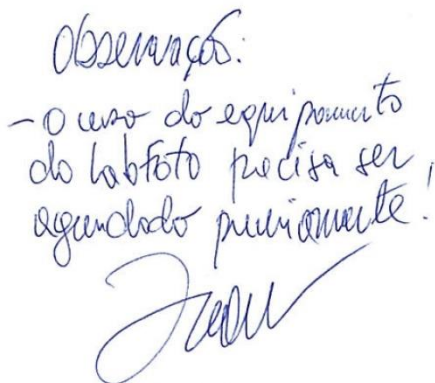 Observação:
- O uso do equipamento
do LabFoto precisa ser
agendado previamente!